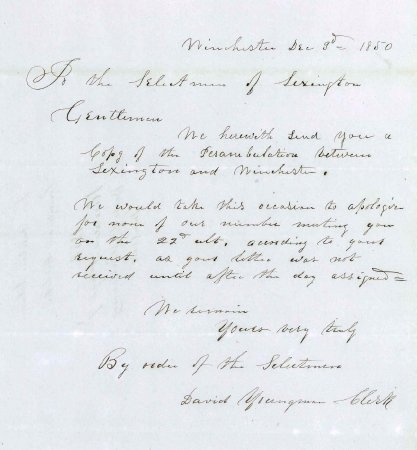 Winchester Dec 3d 1850
To the Selectmen of Lexington
Gentlemen
We herewith send you a
Copy of the Perambulation between
Lexington and Winchester.
We would take this occasion to apologise
for none of our number meeting you
on the 22d ult. acording to your
request, as your letter was not
received until after the day assigned
We remain
Yours very truly
By order of the Selectmen
David Youngman Clerk